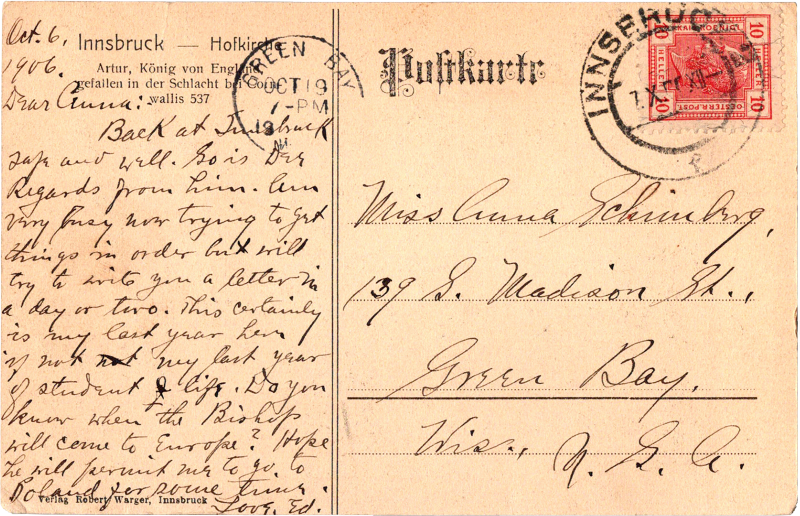 Oct. 6,
1906.
Innsbruck — Hofkirche
Artur, König von England
gefallen in der Schlacht bei Con
wallis 537
Dear Anna:
Back at Innsbruck
safe and well. So is Dee
Regards from him. Am
very busy now trying to get
things in order but will
try to write you a letter in
a day or two. This certainly
is my last year here
if not my last year
of student life. Do you
know when the Bishop
will come to Europe? Hope
he will permit me to go to
Poland for some time.
Love, Ed.
Verlag Robert Warger, Innsbruck
GREEN BAY
OCT 19
7-PM
19
Postkarte
INNSBRUCK
10 10
HELLER
OESTERR. POST
10 10
Miss Anna
139 S. Madison St.,
Green Bay,
Wis., U. S. A.